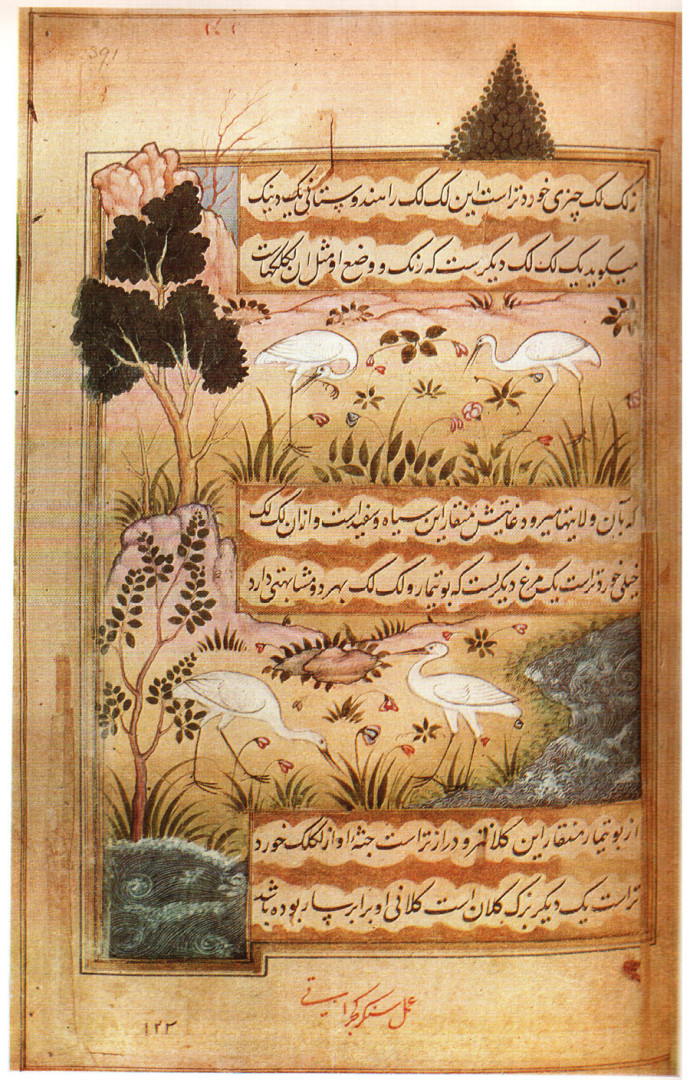 391
زلک لک چیزی خوردتر است این لک لک را هندوستانی یک دنیک
میگوید یک لک لک دیکرست که رنک و وضع او مثل ان لکلکهاست
که بآن ولایتها میرود غایتش منقار این سیاه و سفید است و ازان لک لک
خیلی خوردتر است یک مرغ دیکریست که بوتیمار و لک لک بهر دو مشابهتی دارد
از بوتیمار منقار این کلانتر و درازتر است جثه او از لکلک خورد
تر است یک دیکر بزک کلان است کلانی او برابر سار بوده باشد
عمل سنکر کجراتی
۱۲۳